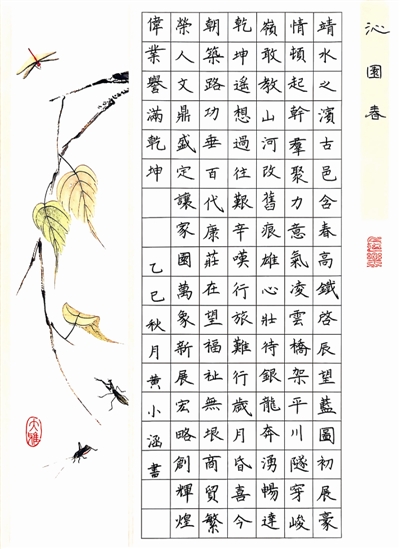 沁園春
靖水之濱古邑含春高鐵啓辰望藍圖初展豪
情頓起幹羣聚力意氣凌雲橋架平川隧穿峻
嶺敢教山河改舊痕雄心壯待銀龍奔湧暢達
乾坤遙想過往艱辛嘆行旅難行歲月昏喜今
朝築路功垂百代康莊在望福祉無垠商貿繁
榮人文鼎盛定讓家園萬象新展宏略創輝煌
偉業譽滿乾坤 乙巳秋月黄小涵書